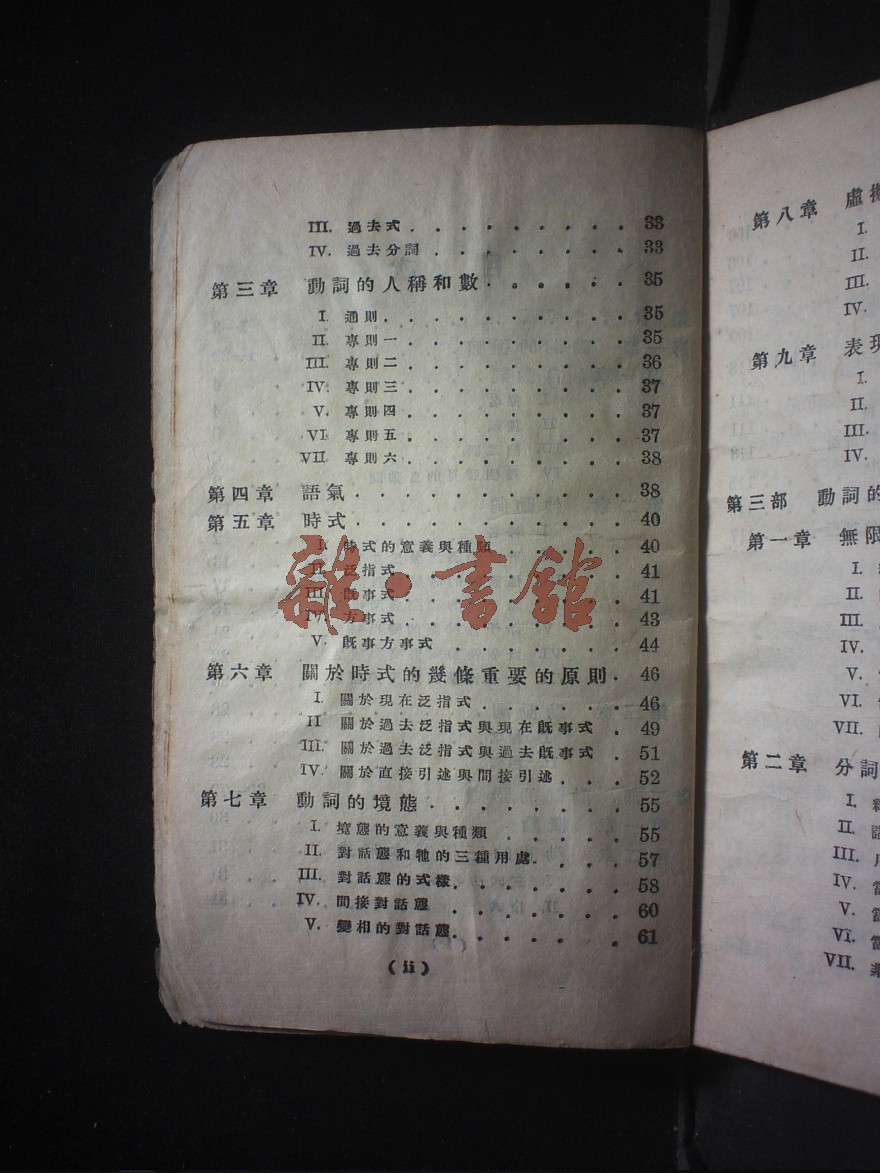 III. 過去式 . . . . . . . . . . 33
IV. 過去分詞 . . . . . . . . . 33
第三章 動詞的人稱和數 . . . . . . 35
I. 通則 . . . . . . . . . . . 35
II. 專則一 . . . . . . . . . . 35
III. 專則二 . . . . . . . . . . 36
IV. 專則三 . . . . . . . . . . 37
V. 專則四 . . . . . . . . . . 37
VI. 專則五 . . . . . . . . . . 37
VII. 專則六 . . . . . . . . . . 38
第四章 語氣 . . . . . . . . . . . 38
第五章 時式 . . . . . . . . . . . 40
I. 時式的意義與種類 . . . . . . 40
II. 泛指式 . . . . . . . . . 41
III. 旣事式 . . . . . . . . . 41
IV. 方事式 . . . . . . . . . 43
V. 旣事方事式 . . . . . . . . 44
雜·書館
第六章 關於時式的幾條重要的原則 . 46
I. 關於現在泛指式 . . . . . . 46
II 關於過去泛指式與現在旣事式 . 49
III. 關於過去泛指式與過去旣事式 . 51
IV. 關於直接引述與間接引述 . . . 52
第七章 動詞的境態 . . . . . . . . 55
I. 境態的意義與種類 . . . . . . 55
II. 對話態和牠的三種用處 . . . . 57
III. 對話態的式樣 . . . . . . . 58
IV. 間接對話態 . . . . . . . . 60
V. 變相的對話態 . . . . . . . 61
( ii )
第八章 虛擬
I.
II.
III.
IV.
第九章 表現
I.
II.
III.
IV.
第三部 動詞的
第一章 無限
I.
II.
III.
IV.
V.
VI.
VII.
第二章 分詞
I.
II.
III.
IV.
V.
VI.
VII.